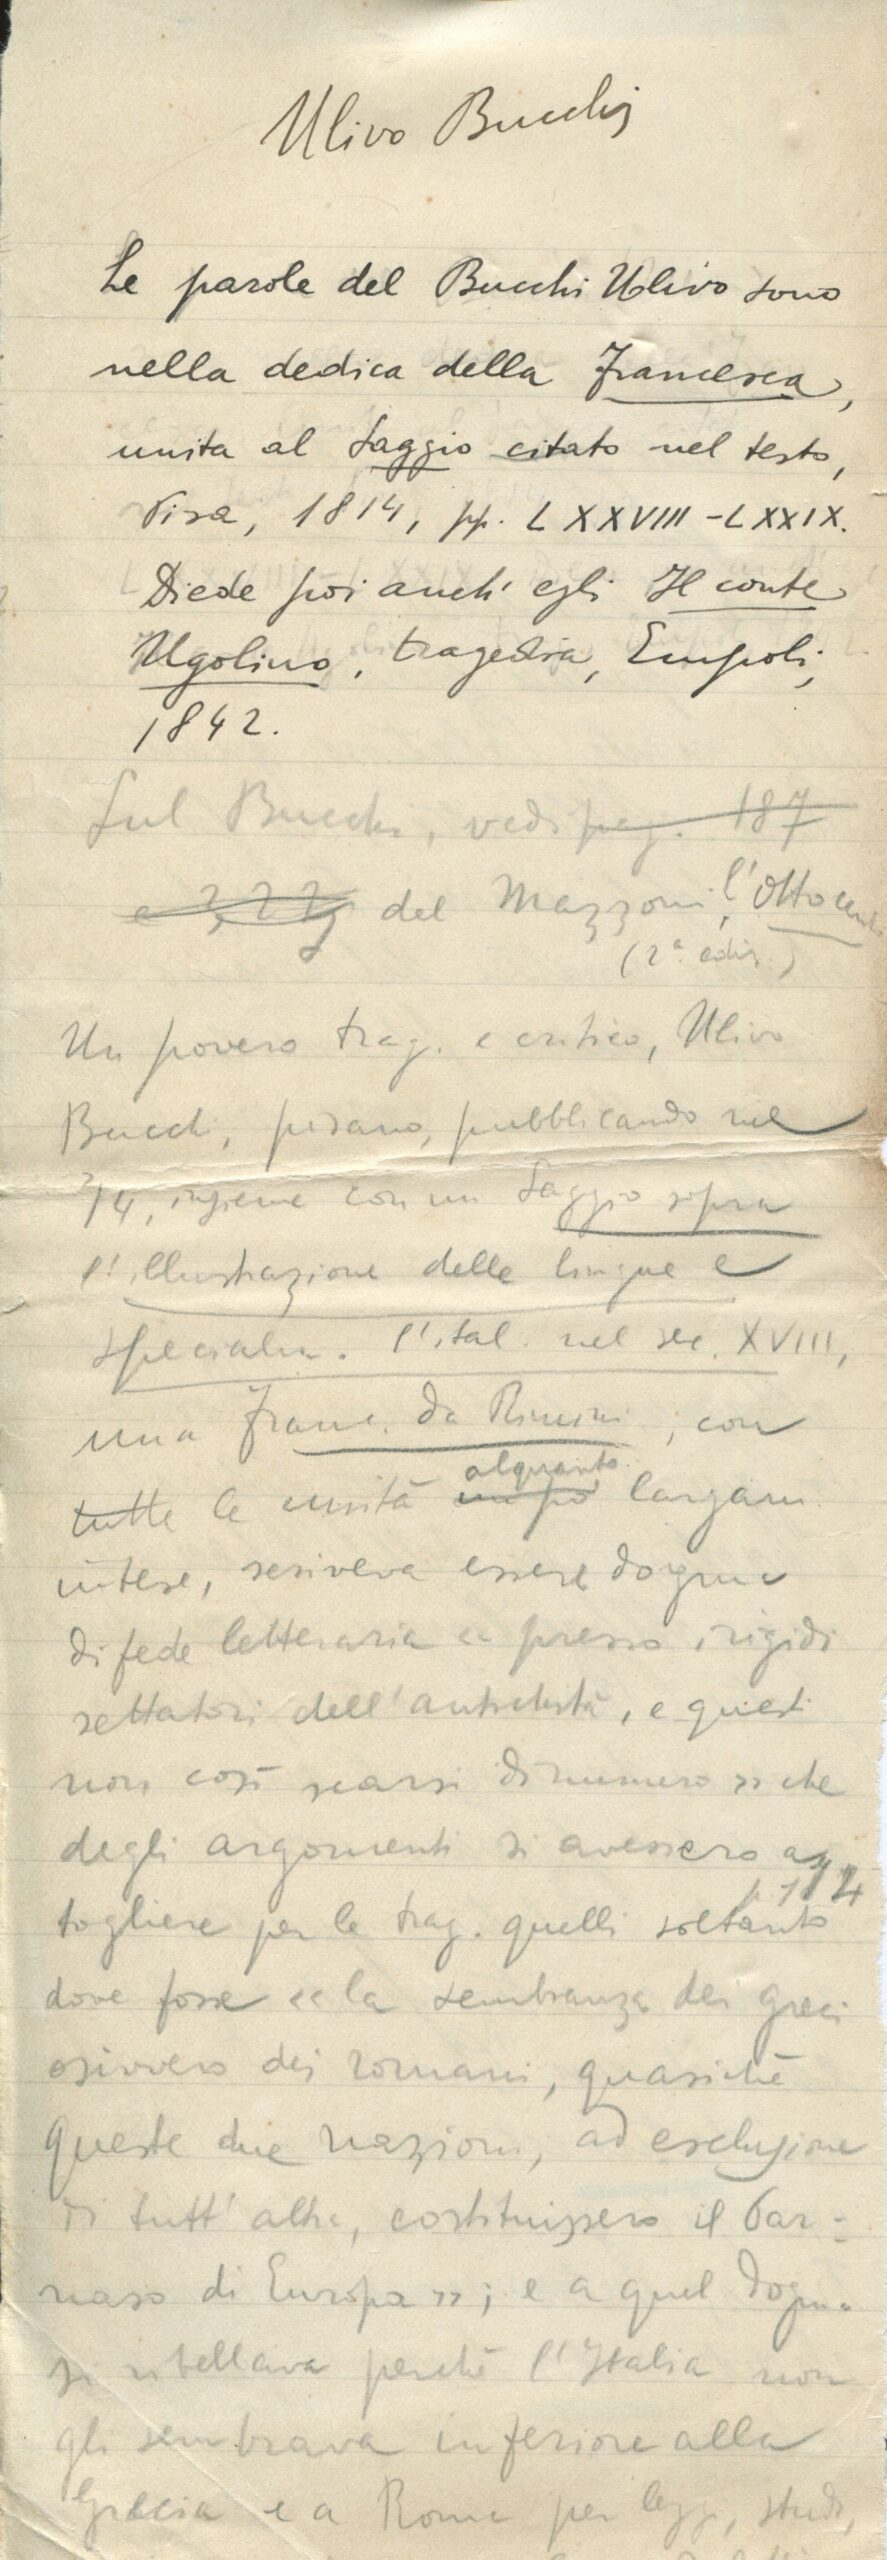 Ulivo Bucchi
Le parole del Bucchi Ulivo sono
nella dedica della Francesca,
unita al Saggio citato nel testo,
Pisa, 1814, pp. LXXVIII-LXXIX.
Diede poi anch' egli Il conte
Ugolino, tragedia, Empoli,
1842.
Sul Bucchi, vedi pag. 187
e 227 del Mazzoni, l'Ottocento
(2ª ediz.)
Un povero trag. e critico, Ulivo
Bucchi, pisano, pubblicando nel
'14, insieme con un Saggio sopra
l'illustrazione delle lingue e
specialm. l'ital. nel sec. XVIII,
una Franc. da Rimini, con
alquanto
tutte le unità un po' largam.
intese, scriveva essere dogma
di fede letteraria « presso i rigidi
settatori dell'antichità, e questi
non così scarsi di numero » che
degli argomenti si avessero a
p. 114
togliere per le trag. quelli soltanto
dove fosse « la sembranza dei greci
ovvero dei romani, quasichè
queste due nazioni, ad esclusione
di tutt' altre, costituissero il Par-
naso di Europa »; e a quel dogma
si ribellava perchè l'Italia non
gli sembrava inferiore alla
Grecia e a Roma per leggi, studi,